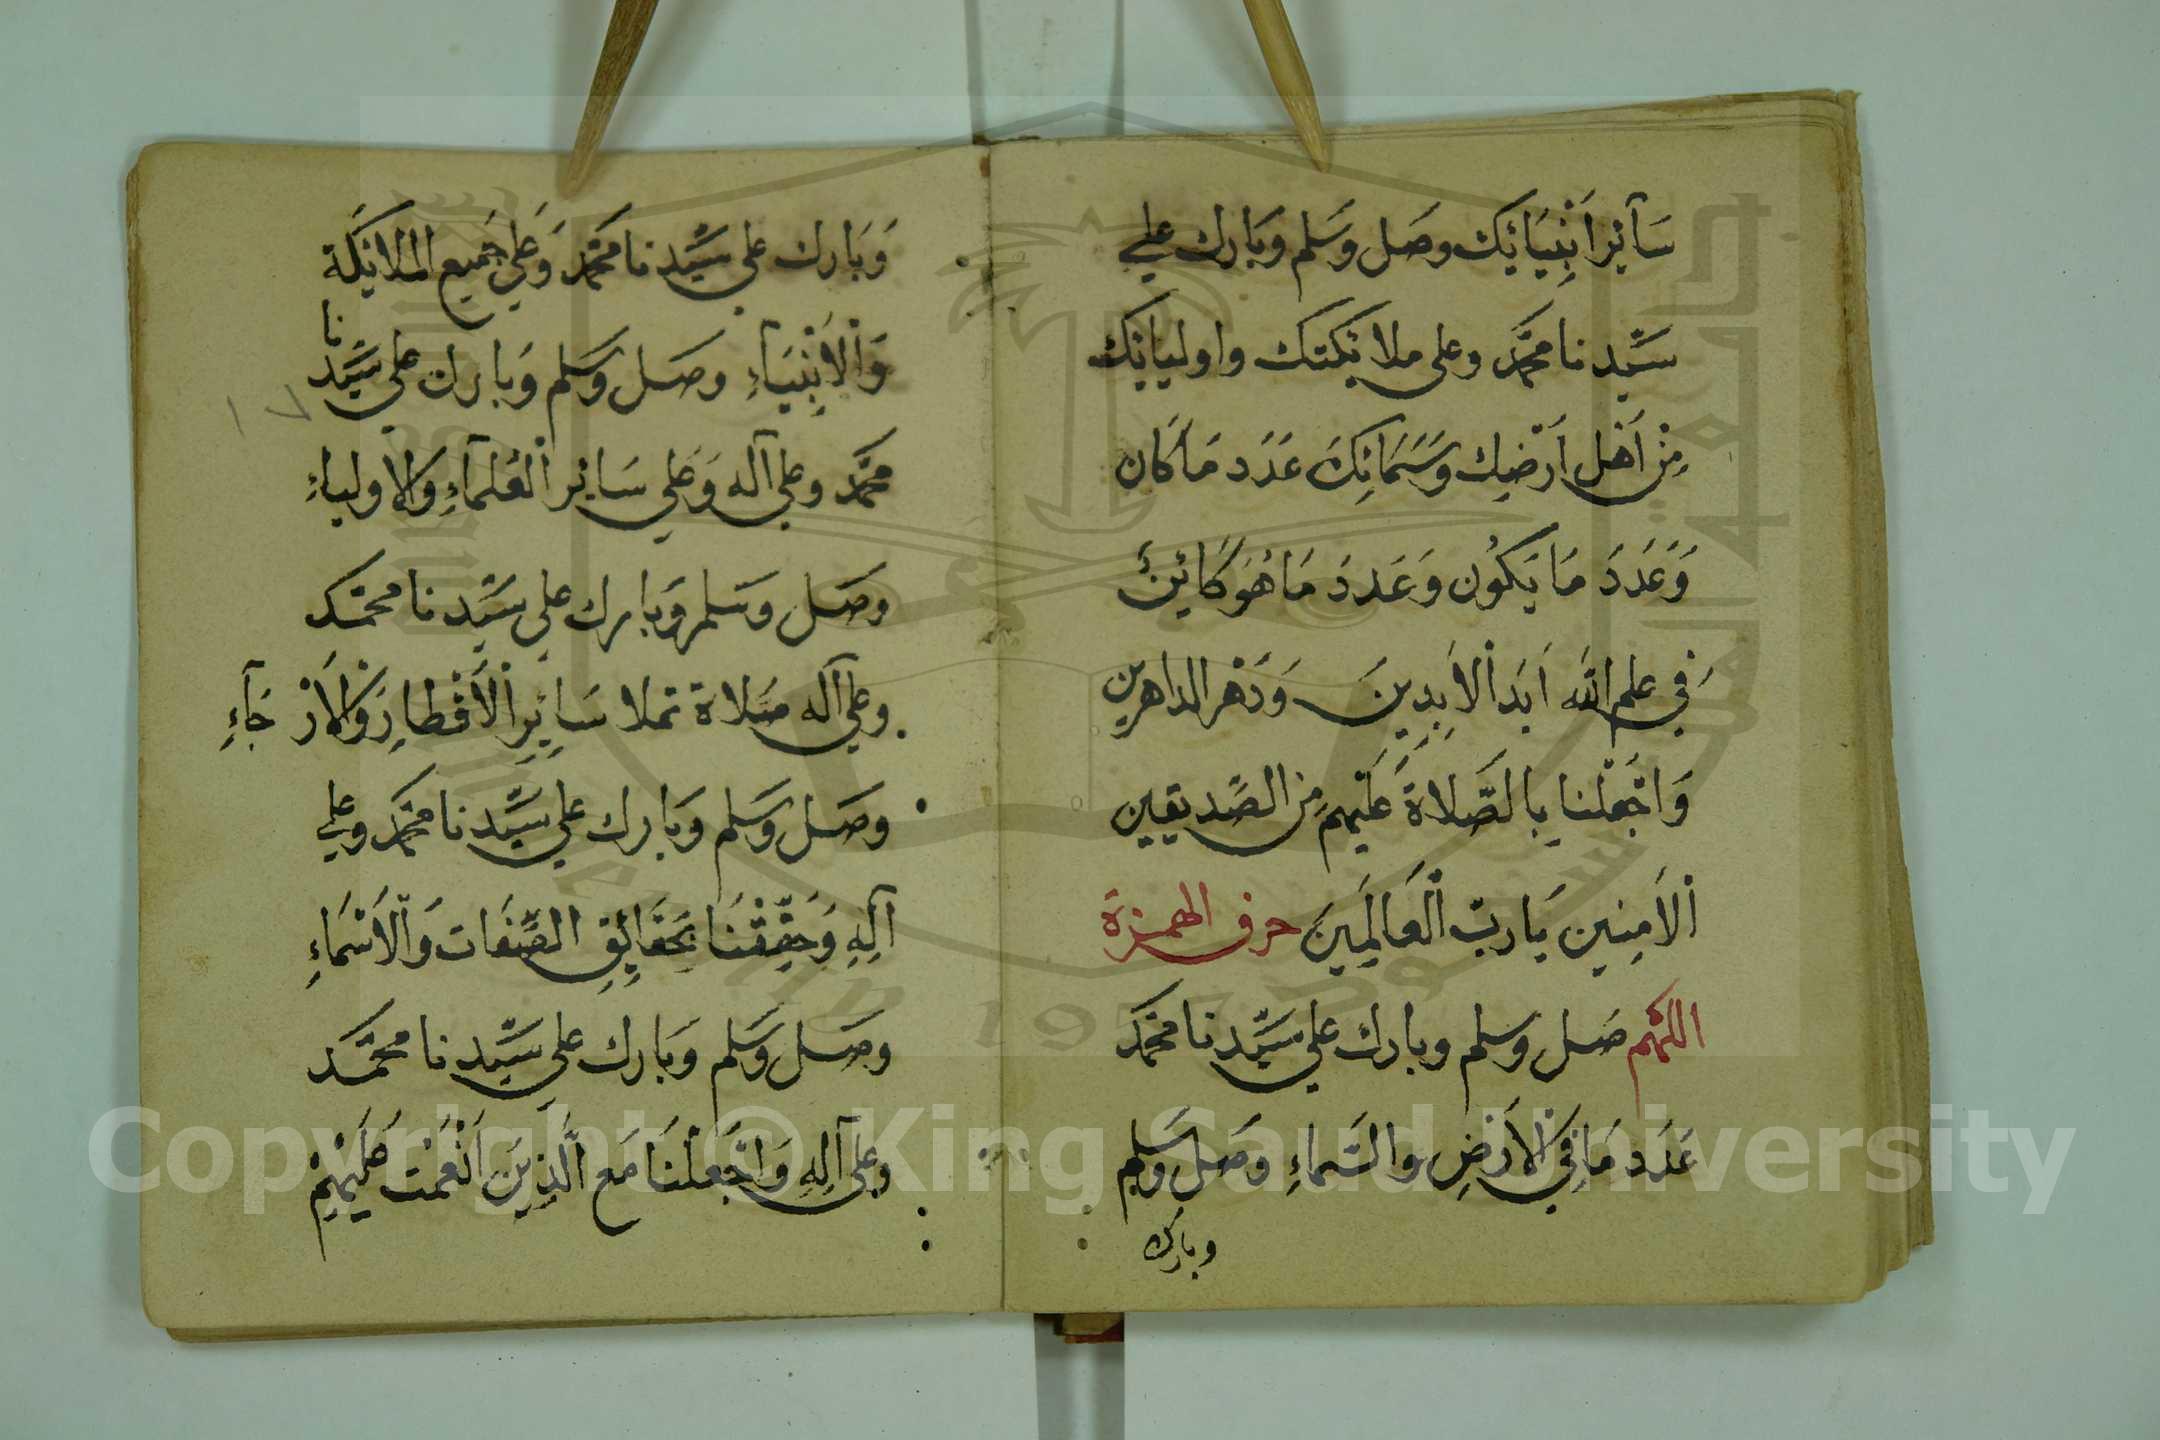 سَآئِر اَنْبِيَائِكَ وصَل وَسَلم وَبَارك علي
سَيّدنا محمَّد وعلى ملائكتك واوليائك
مِنْ اَهْل اَرْضِك وَسَمَائِكَ عَدَد مَا كَان
وَعَدَدَ مَا يَكُون وَعَددَ مَا هُوَ كَائِنٌ
فِي علم الله اَبَد الْاَبِدِينَ وَدَهْر الداهرين
وَاجْعَلْنا بالصَّلاةَ عَلَيْهِم مِن الصِّديقين
الْاَمِنِين يَارب الْعَالَمِينَ حرف الهمزة
اللهم صَل وسلم وبارك علي سَيِّدنا محمَّد
عَدَد مَا فِي الْاَرْضِ والسَّماءِ وصَل وَسَلم
وبارك
وَبَارك على سَيِّدنا محمَّد وَعَلي جَمِيع الملائكة
وَالْاَنْبِيَاءِ وصَل وَسَلم وَبارك علي سَيّدنا
محمَّد وعلى آله وَعَلي سَائر الْعُلمآءِ وَالاولياءِ
وصَل وسَلم وَبارك علي سَيّدنا محمّد
وعلي آله صَلاة تملا سَائِرِ الْاَقْطارِ وَالْاَرْجَآءِ
وصَل وَسَلم وَبَارك علي سَيِّدنا محمَّد وعلي
آلِهِ وَحَقِّقْنَا بِحَقَائِقِ الصِّفَات وَالْاَسْمَاءِ
وصَل وَسَلم وَبَارك علي سَيِّدنا محمّد
وعلى آلِهِ وَاجْعَلْنَا مَع الَّذِينَ اَنْعَمْت عَلَيْهِمْ
١٧
Copyright © King Saud University